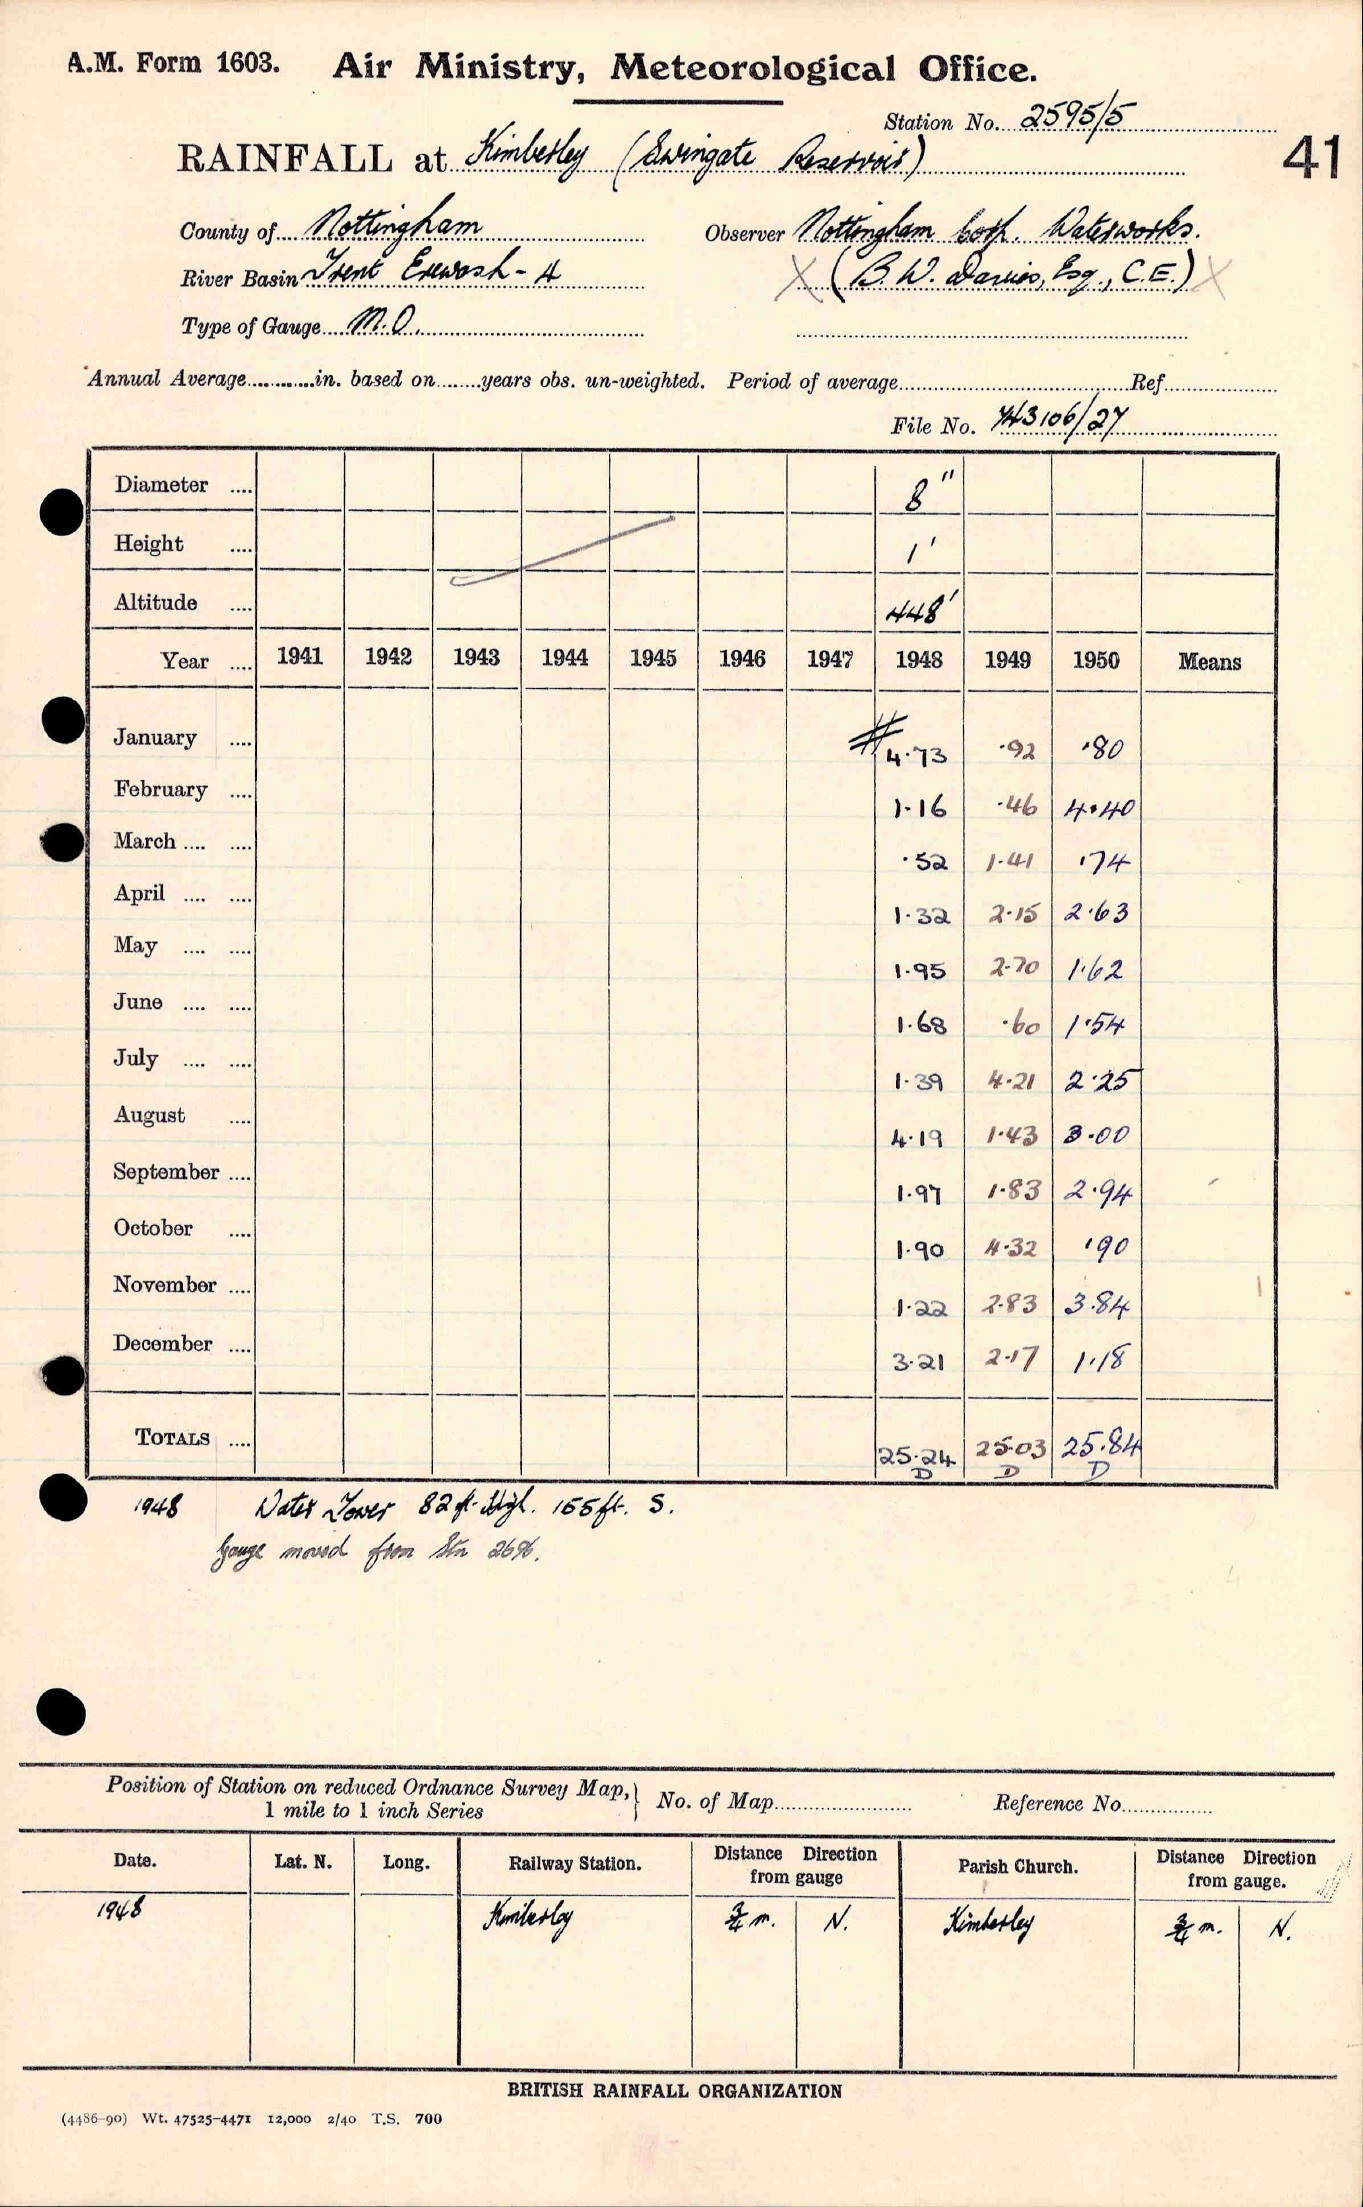 A.M. Form 1603. Air Ministry, Meteorological Office.
Station No. 2595/5
RAINFALL at Kimberley (Swingate Reservoir)
41
County of Nottingham Observer Nottingham Corp. Waterworks.
River Basin Trent Erewash - 4 X (B. W. Davies, Esq., C.E.) X
Type of Gauge M.O.
Annual Average............in. based on........years obs. un-weighted. Period of average........ Ref........
File No. 743106/27
Diameter .... 8"
Height .... 1'
Altitude .... 448'
Year .... 1941 1942 1943 1944 1945 1946 1947 1948 1949 1950 Means
January .... 4.73 .92 .80
February .... 1.16 .46 4.40
March .... .... .52 1.41 .74
April .... .... 1.32 2.15 2.63
May .... .... 1.95 2.70 1.62
June .... .... 1.68 .60 1.54
July .... .... 1.39 4.21 2.25
August .... 4.19 1.43 3.00
September .... 1.97 1.83 2.94
October .... 1.90 4.32 .90
November .... 1.22 2.83 3.84
December .... 3.21 2.17 1.18
TOTALS .... 25.24 25.03 25.84
D D D
1948 Water Tower 82 ft. high. 155 ft. S.
Gauge moved from Stn
Position of Station on reduced Ordnance Survey Map, } No. of Map........ Reference No........
1 mile to 1 inch Series
Date. Lat. N. Long. Railway Station. Distance from gauge Direction Parish Church. Distance from gauge. Direction
1948 Kimberley ¾ m. N. Kimberley ¾ m. N.
BRITISH RAINFALL ORGANIZATION
(4486-90) Wt. 47525-4471 12,000 2/40 T.S. 700